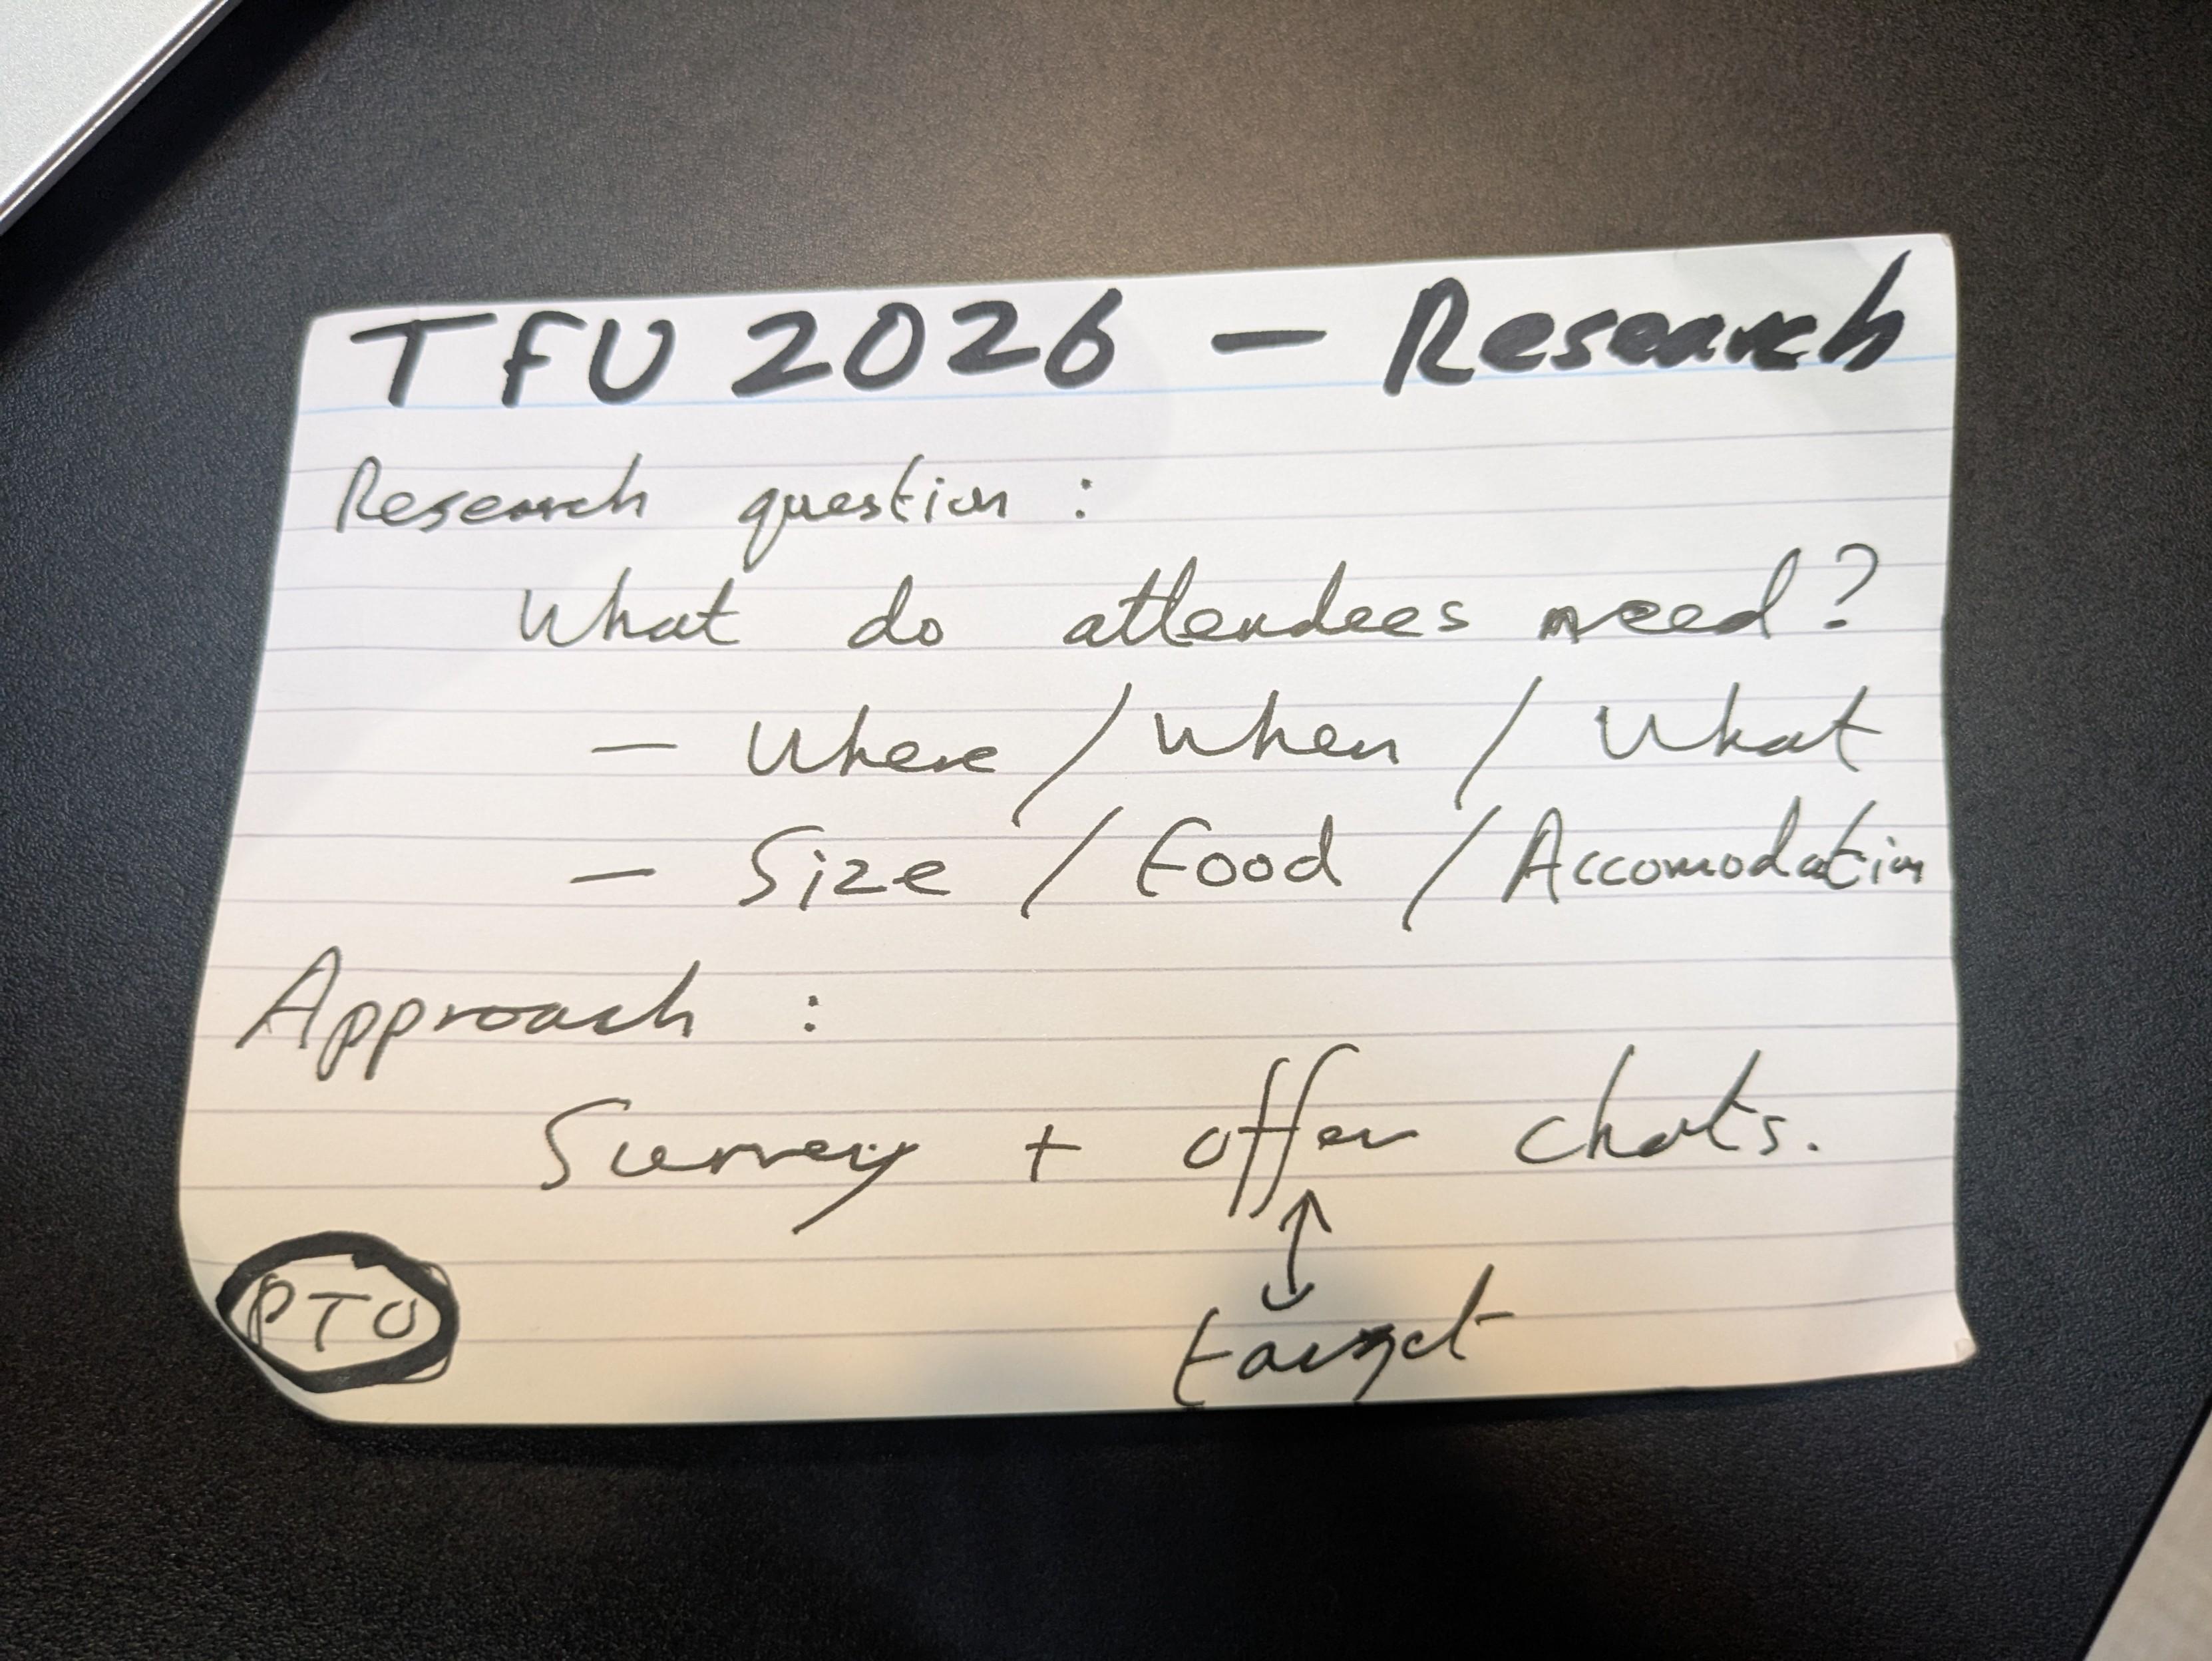 TFU 2026 - Research
Research question :
What do attendees need?
- Where / When / What
- Size / Food / Accomodation
Approach :
Survey + offer chats.
target
PTO